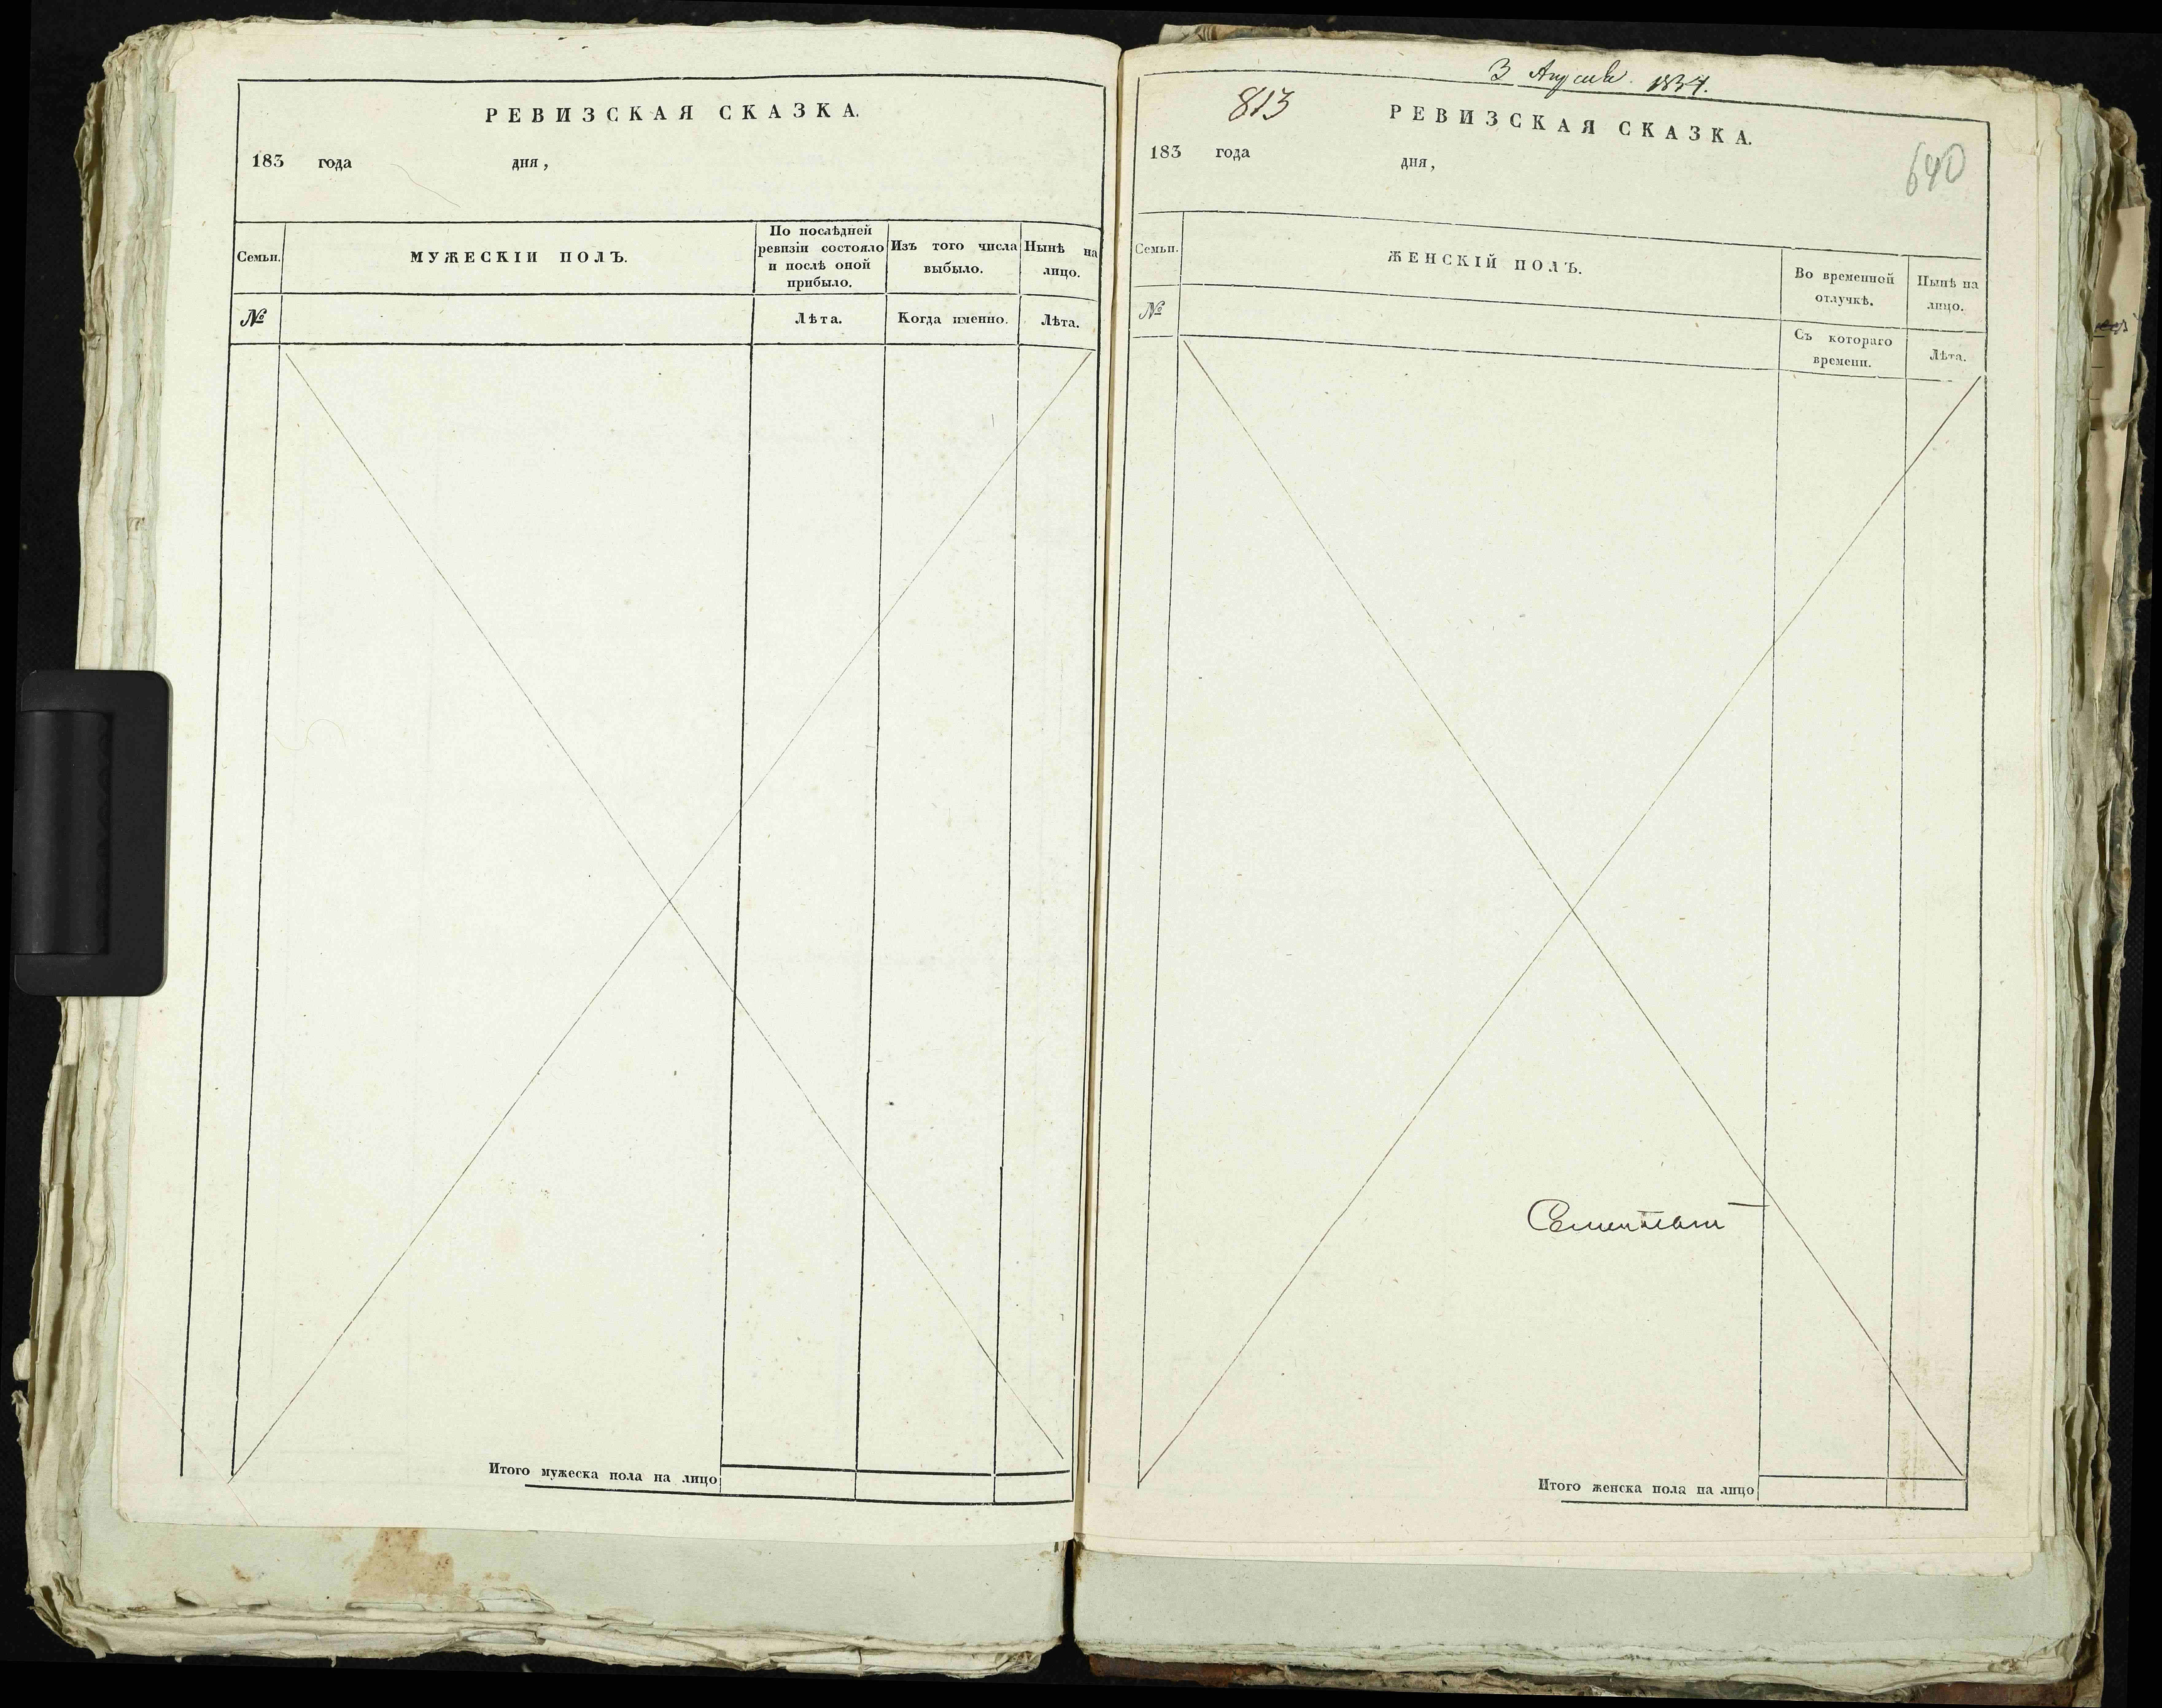 РЕВИЗСКАЯ СКАЗКА.
183 года дня,
Семьи.
МУЖЕСКІИ ПОЛЪ.
По послѣдней
ревизіи состояло
и послѣ оной
прибыло.
Изъ того числа
выбыло.
Нынѣ на
лицо.
№
Лѣта.
Когда именно.
Лѣта.
Итого мужеска пола на лицо
3 Апреля. 1834.
813
РЕВИЗСКАЯ СКАЗКА.
183 года дня,
640
Семьи.
ЖЕНСКІЙ ПОЛЪ.
Во временной
отлучкѣ.
Нынѣ на
лицо.
№
Съ котораго
времени.
Лѣта.
Итого женска пола на лицо